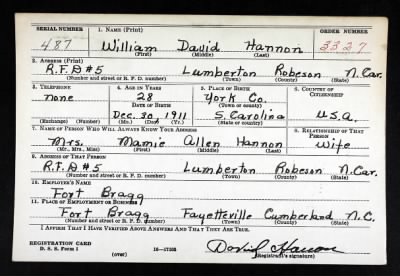 SERIAL NUMBER 1. NAME (Print) ORDER NUMBER
487 William David Hannon 3327
(First) (Middle) (Last)
2. ADDRESS (Print)
R.F.D#5 Lumberton Robeson N.Car.
(Number and street or R. F. D. number) (Town) (County) (State)
3. TELEPHONE 4. AGE IN YEARS 5. PLACE OF BIRTH 6. COUNTRY OF CITIZENSHIP
none 28 York Co.
DATE OF BIRTH (Town or county)
Dec. 30, 1911 S. Carolina U.S.A.
(Exchange) (Number) (Mo.) (Day) (Yr.) (State or country)
7. NAME OF PERSON WHO WILL ALWAYS KNOW YOUR ADDRESS 8. RELATIONSHIP OF THAT PERSON
Mrs. Mamie Allen Hannon Wife
(Mr., Mrs., Miss) (First) (Middle) (Last)
9. ADDRESS OF THAT PERSON
R.F.D#5 Lumberton Robeson N.Car.
(Number and street or R. F. D. number) (Town) (County) (State)
10. EMPLOYER'S NAME
Fort Bragg
11. PLACE OF EMPLOYMENT OR BUSINESS
Fort Bragg Fayetteville Cumberland N.C.
(Number and street or R. F. D. number) (Town) (County) (State)
I AFFIRM THAT I HAVE VERIFIED ABOVE ANSWERS AND THAT THEY ARE TRUE.
REGISTRATION CARD
D. S. S. Form 1 (over) 16—17105 David Hannon
(Registrant's signature)